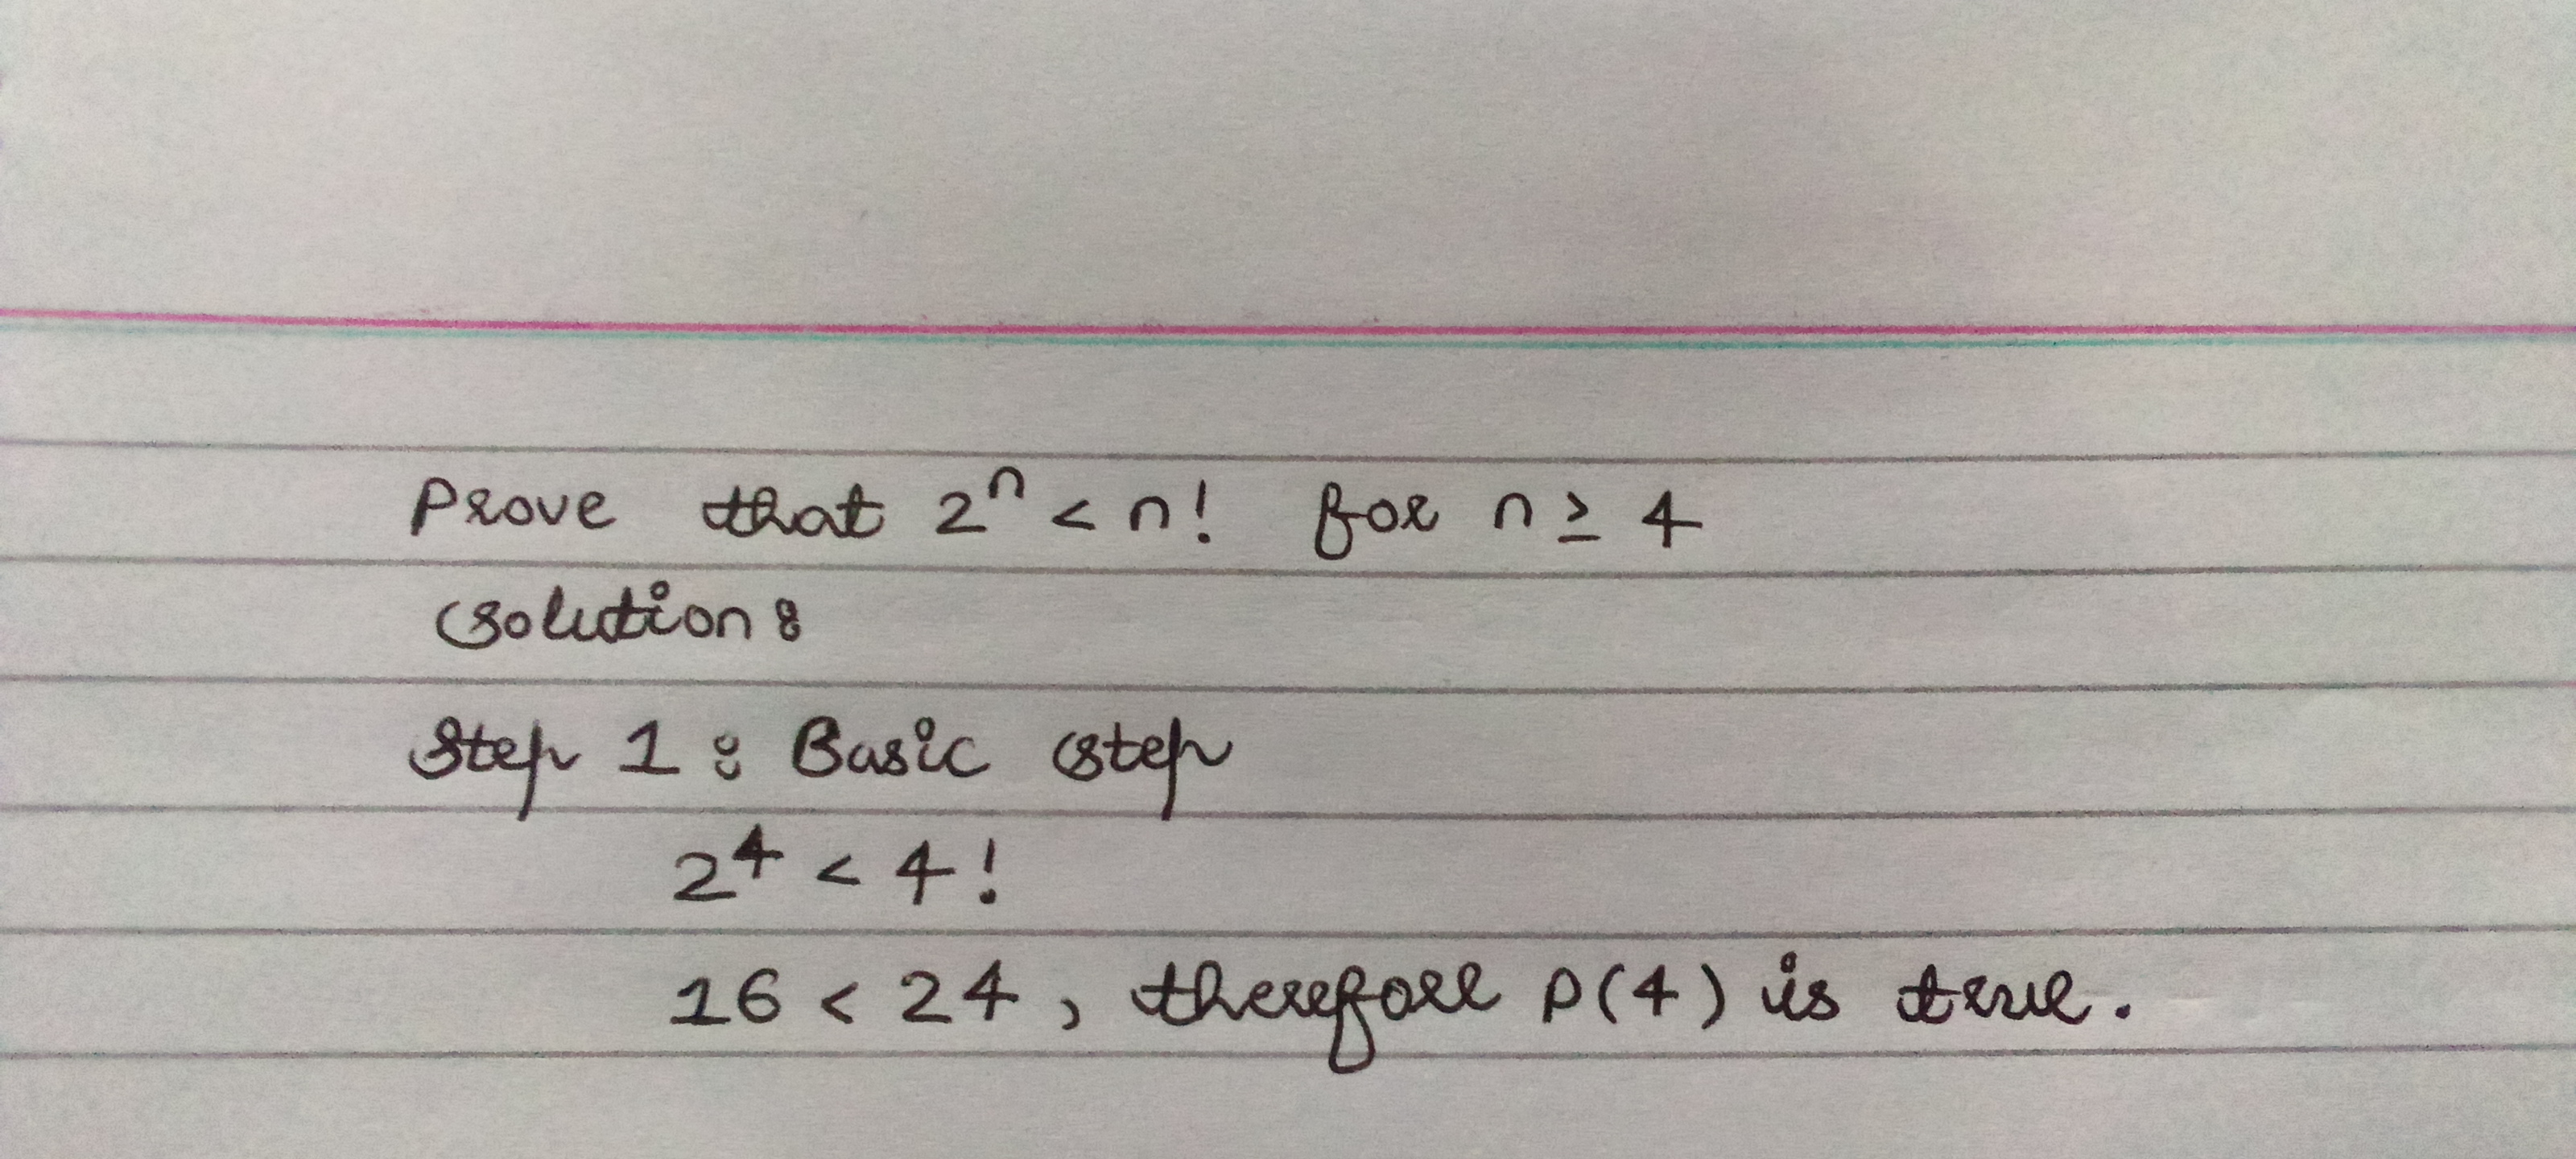 Prove that 2ⁿ < n! for n ≥ 4
Solution:
Step 1: Basic step
2⁴ < 4!
16 < 24, therefore P(4) is true.